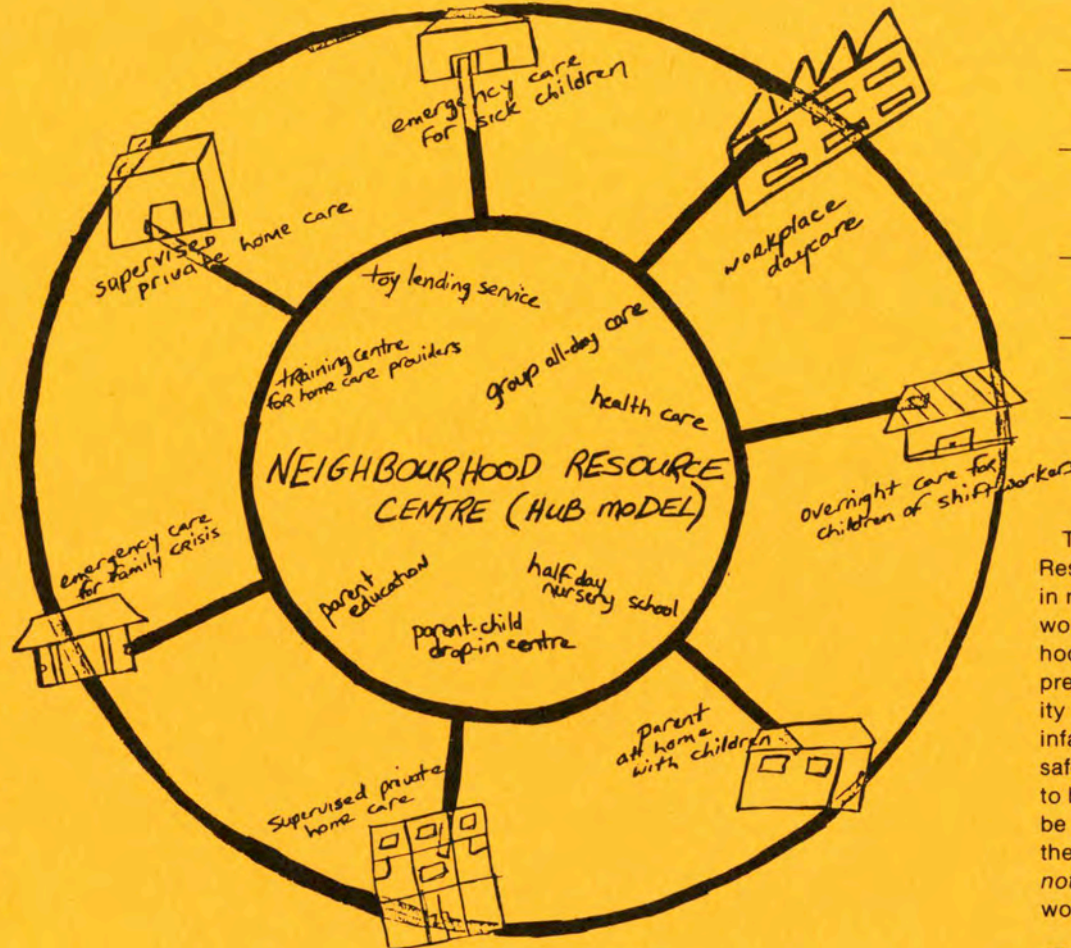 emergency care
for sick children
workplace
daycare
supervised
private home care
toy lending service
training centre
for home care providers
group all-day care
health care
NEIGHBOURHOOD RESOURCE
CENTRE (HUB MODEL)
overnight care for
children of shiftworkers
emergency care
for family crisis
parent
education
half day
nursery school
parent-child
drop-in centre
parent
at home
with children
supervised private
home care
T
Res
in n
wo
hoo
pre
ity
infa
saf
to b
be
the
not
wo